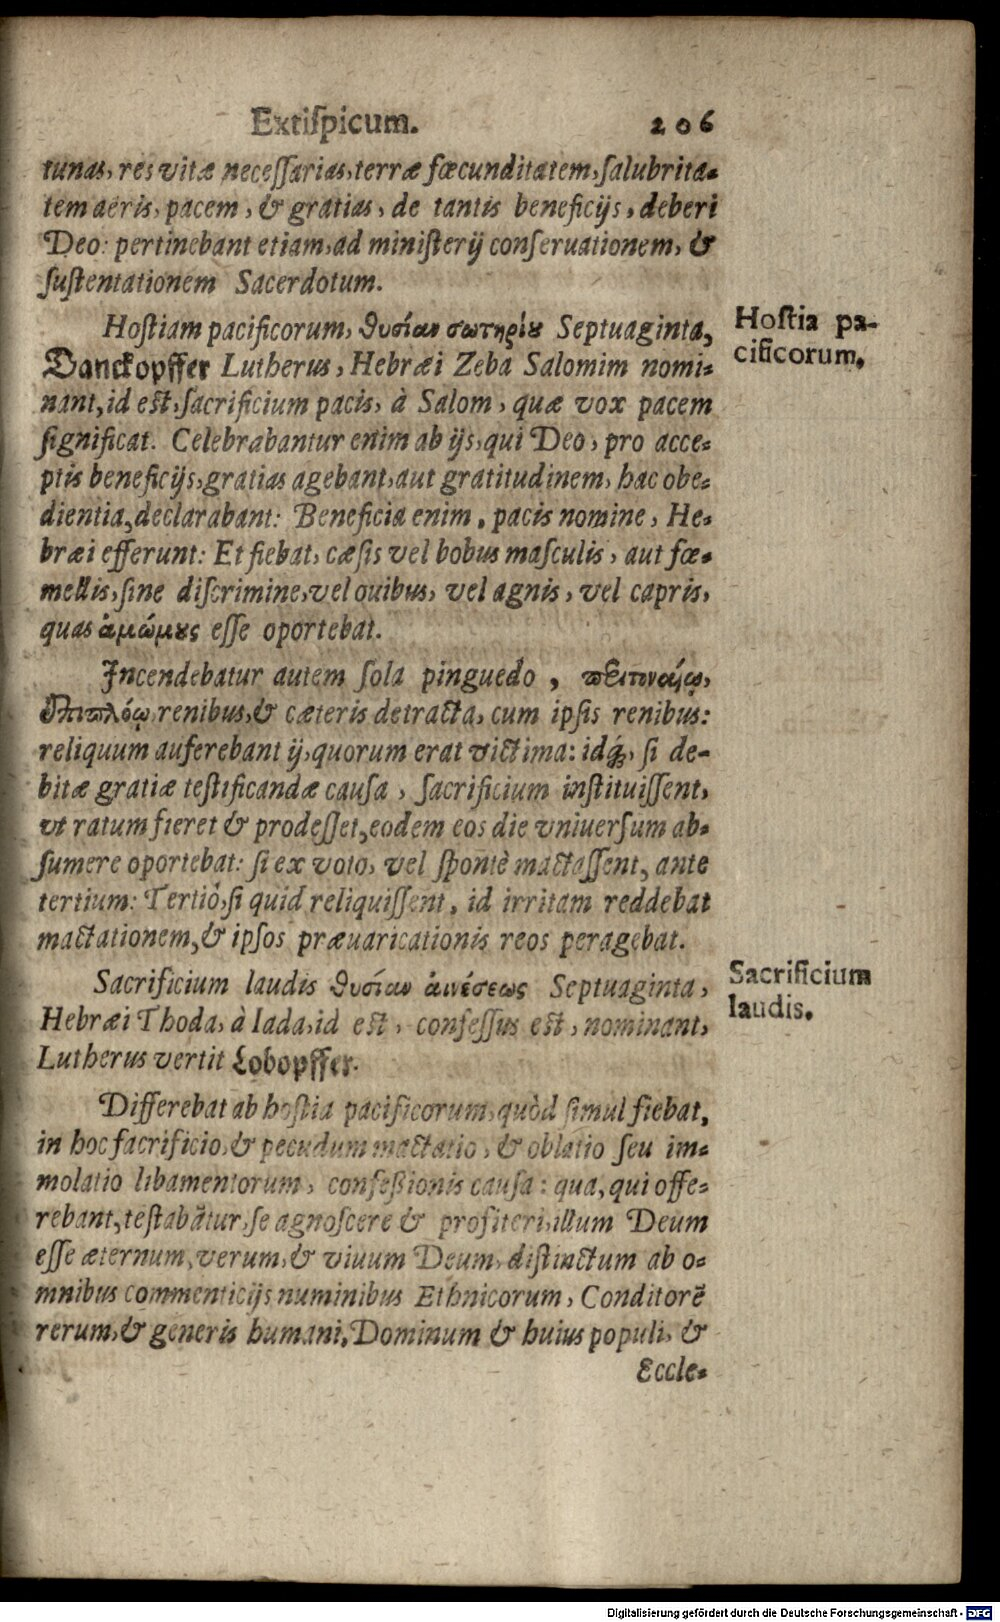 Extiſpicum. 206
tunas, res vitæ neceſſarias, terræ fœcunditatem, ſalubrita-
tem aëris, pacem, & gratias, de tantis beneficijs, deberi
Deo: pertinebant etiam, ad miniſterij conſeruationem, &
ſuſtentationem Sacerdotum.
Hoſtiam pacificorum, θυσίαν σωτηρίȣ Septuaginta,
Danckopffer Lutherus, Hebræi Zeba Salomim nomi-
nant, id eſt, ſacrificium pacis, à Salom, quæ vox pacem
ſignificat. Celebrabantur enim ab ijs, qui Deo, pro acce-
ptis beneficijs, gratias agebant, aut gratitudinem, hac obe-
dientia, declarabant: Beneficia enim, pacis nomine, He-
bræi efferunt: Et fiebat, cæſis vel bobus maſculis, aut fœ-
mellis, ſine diſcrimine, vel ouibus, vel agnis, vel capris,
quas ἀμώμȣς eſſe oportebat.
Hoſtia pa-
cificorum.
Incendebatur autem ſola pinguedo,
renibus, & cæteris detracta, cum ipſis renibus:
reliquum auferebant ij, quorum erat victima: idq́;, ſi de-
bitæ gratiæ teſtificandæ cauſa, ſacrificium inſtituiſſent,
vt ratum fieret & prodeſſet, eodem eos die vniuerſum ab-
ſumere oportebat: ſi ex voto, vel ſpontè mactaſſent, ante
tertium: Tertiò, ſi quid reliquiſſent, id irritam reddebat
mactationem, & ipſos præuaricationis reos peragebat.
Sacrificium laudis θυσίαν ἀινέσεως Septuaginta,
Hebræi Thoda, à Iada, id eſt, confeſſus eſt, nominant,
Lutherus vertit Lobopffer.
Sacrificium
laudis.
Differebat ab hoſtia pacificorum, quòd ſimul fiebat,
in hoc ſacrificio, & pecudum mactatio, & oblatio ſeu im-
molatio libamentorum, confeßionis cauſa: qua, qui offe-
rebant, teſtabātur, ſe agnoſcere & profiteri, illum Deum
eſſe æternum, verum, & viuum Deum, diſtinctum ab o-
mnibus commenticijs numinibus Ethnicorum, Conditorē
rerum, & generis humani, Dominum & huius populi, &
Eccle-
Digitalisierung gefördert durch die Deutsche Forschungsgemeinschaft - DFG